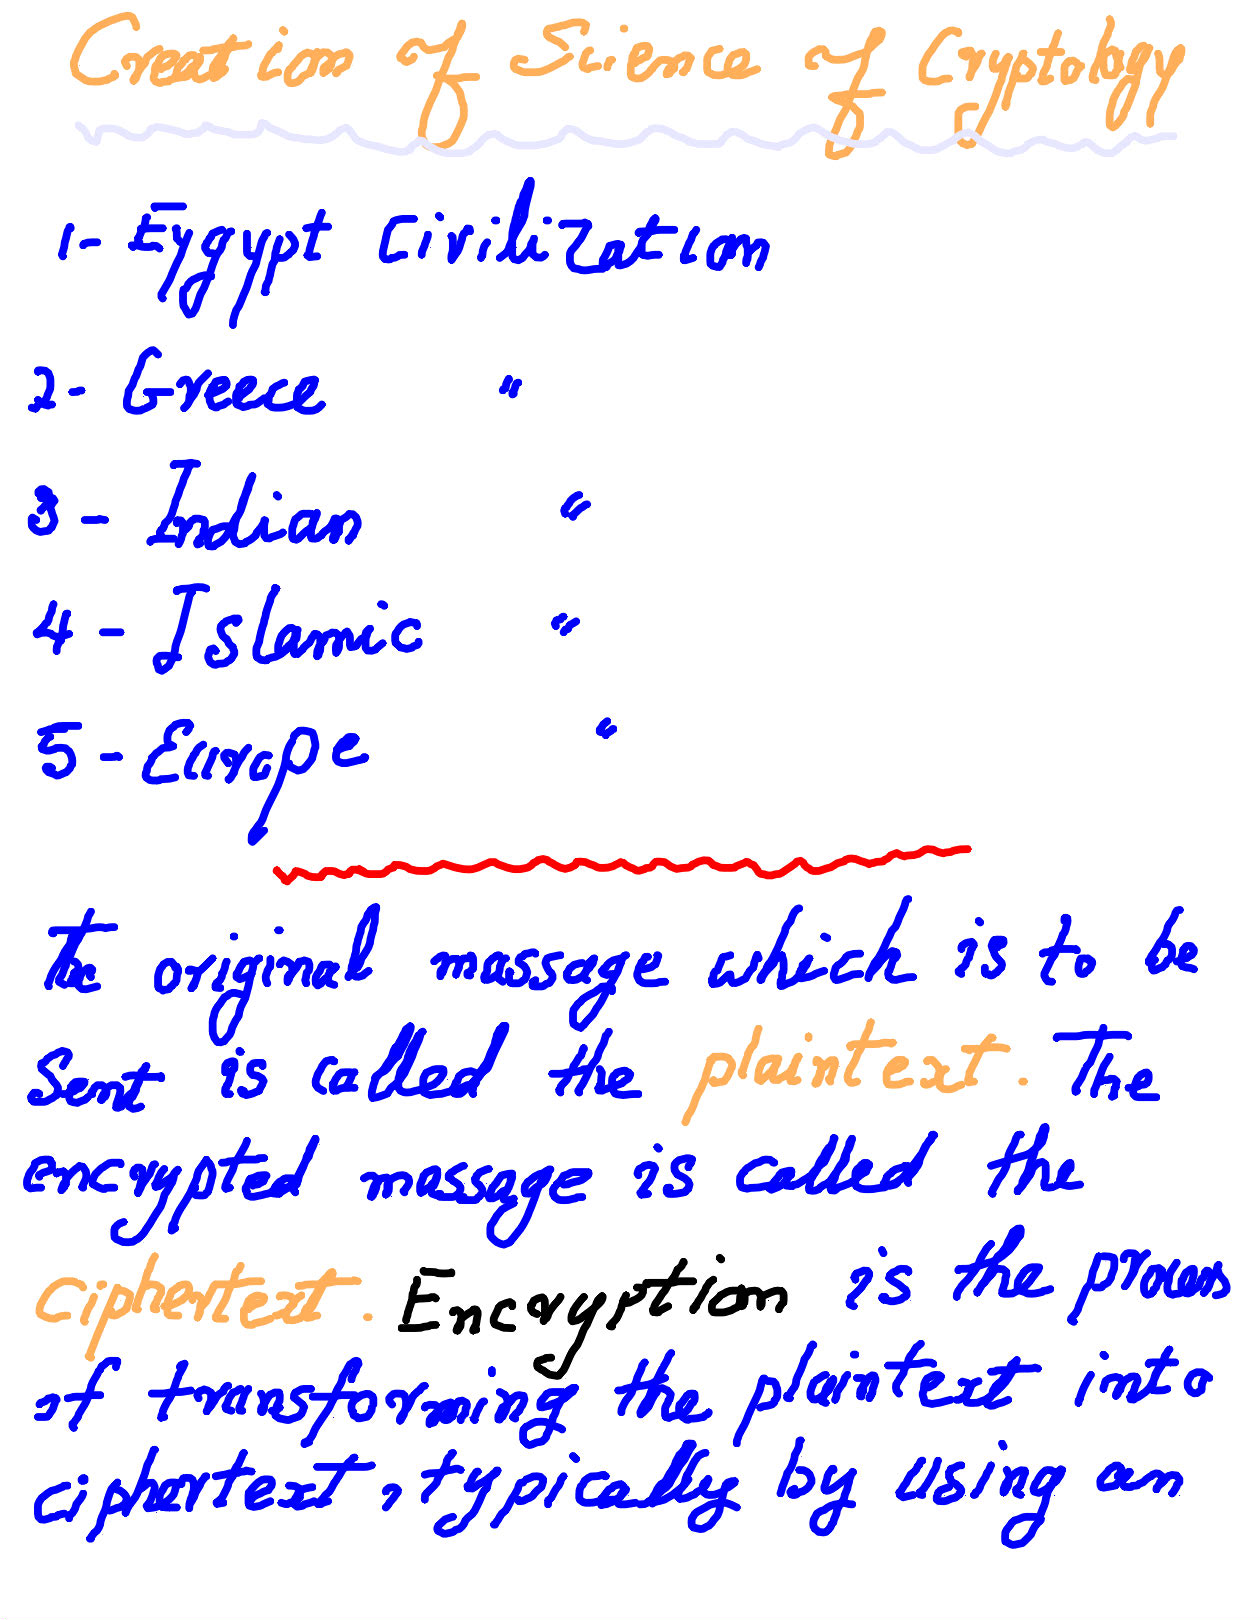 Creation of Science of Cryptology
1- Egypt Civilization
2- Greece "
3- Indian "
4- Islamic "
5- Europe "
The original massage which is to be
Sent is called the plaintext. The
encrypted massage is called the
ciphertext. Encryption is the process
of transforming the plaintext into
ciphertext, typically by using an